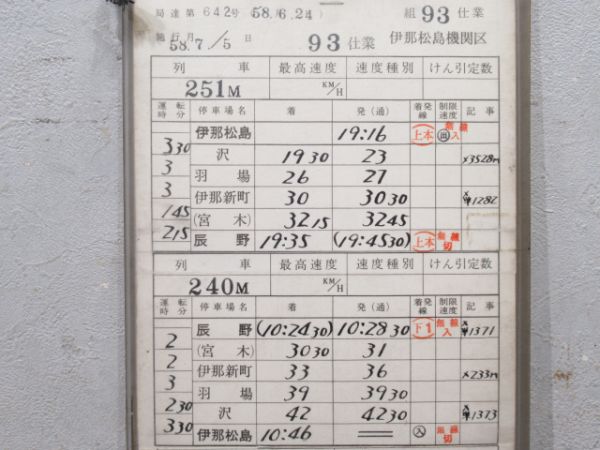 局達第642号(58.6.24) 組93仕業
施行月 58.7/5 日 93仕業 伊那松島機関区
列車 最高速度 速度種別 けん引定数
251M KM/H
運転時分 停車場名 着 発(通) 着発線 制限速度 記事
伊那松島 19:16 上本 無線入
330 沢 1930 23 ×3528m
3 羽場 26 27
3 伊那新町 30 3030 1282
145 (宮木) 3215 3245
215 辰野 19:35 (19:4530) 上本 無線切
列車 最高速度 速度種別 けん引定数
240M KM/H
運転時分 停車場名 着 発(通) 着発線 制限速度 記事
辰野 (10:2430) 10:2830 下1 無線入 1371
2 (宮木) 3030 31
2 伊那新町 33 36 ×233m
3 羽場 39 3930
230 沢 42 4230 1373
330 伊那松島 10:46 入 無線切